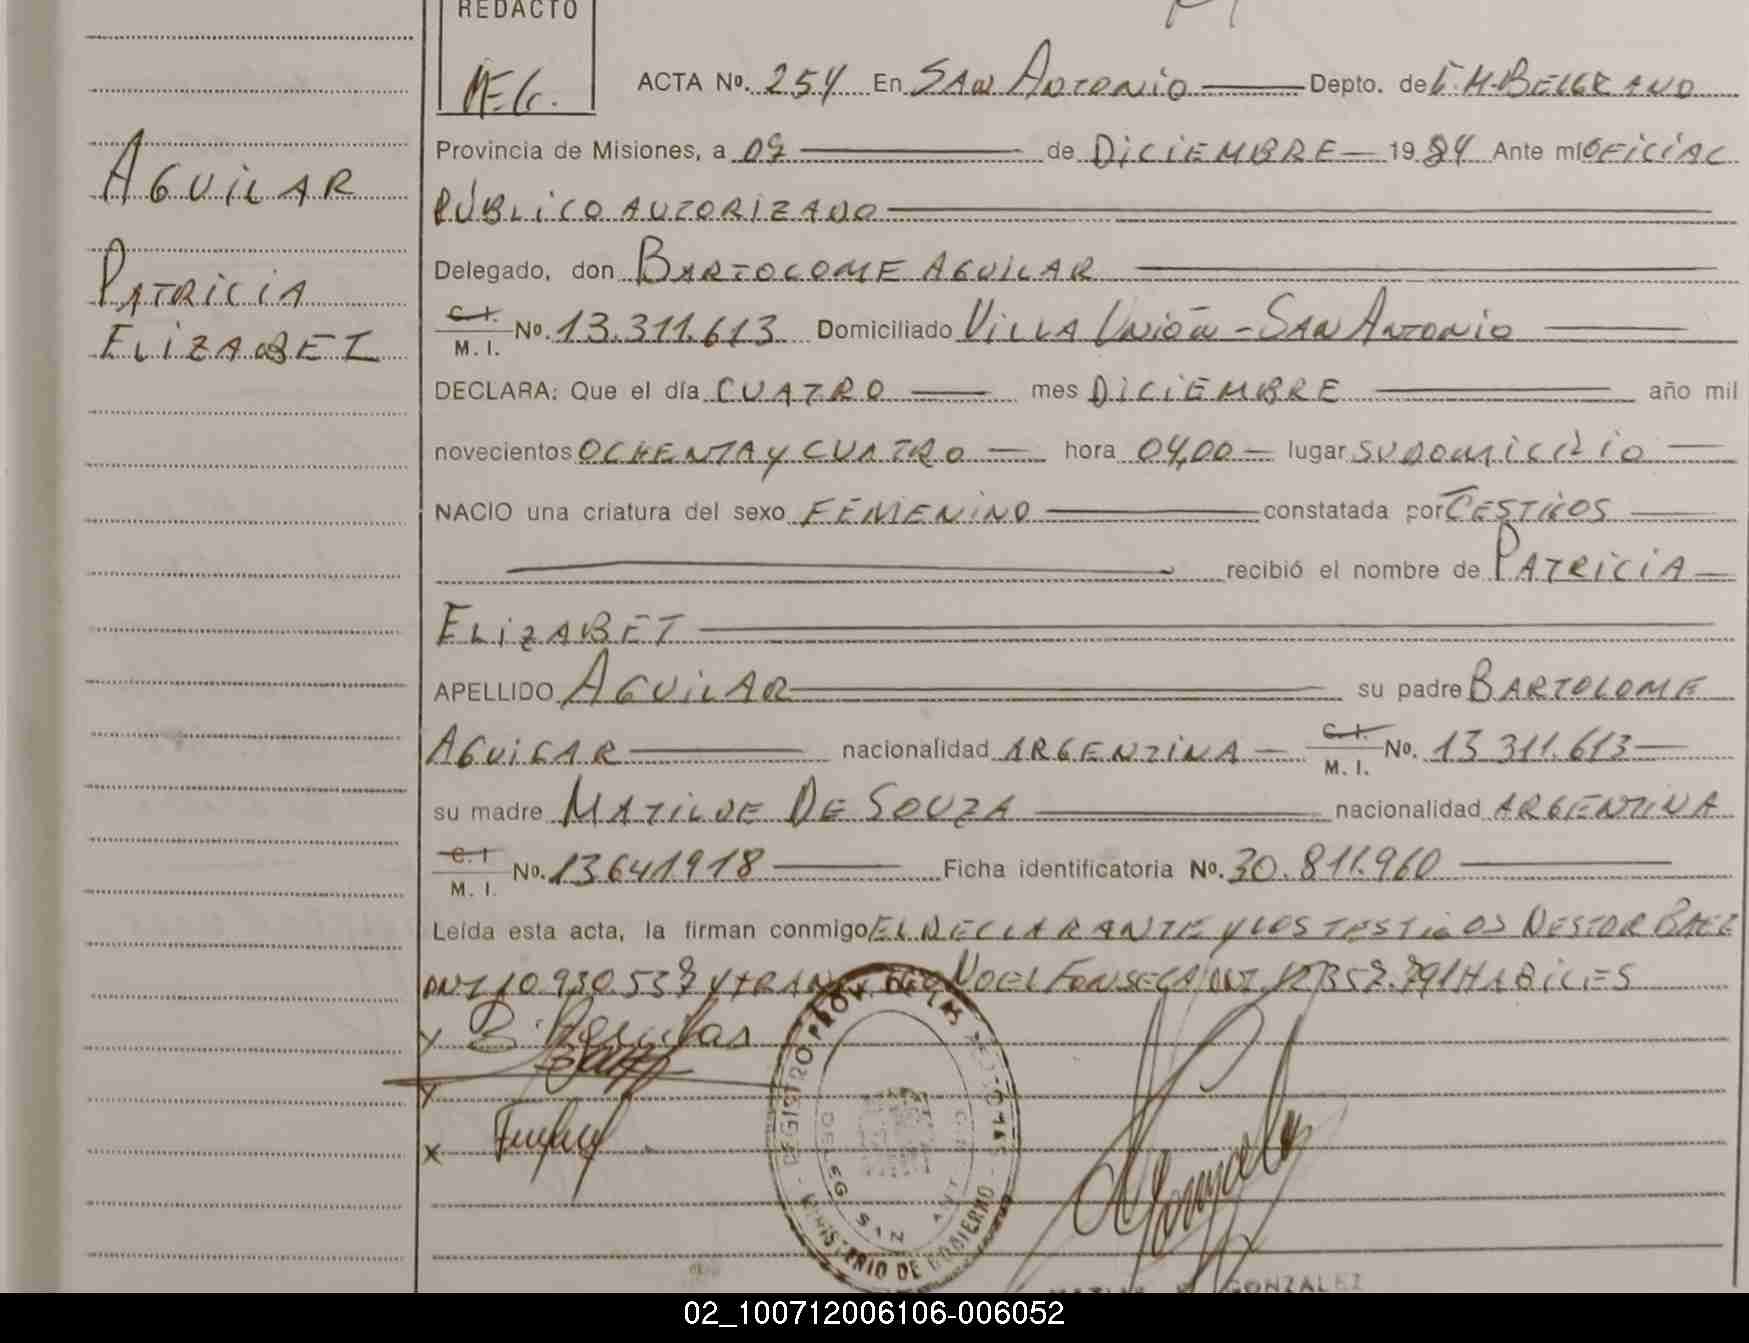 REDACTO
M.E.G.
ACTA Nº. 254 En SAN ANTONIO Depto. de G.M.BELGRANO
Provincia de Misiones, a 09 de DICIEMBRE 1984 Ante mí OFICIAL
PÚBLICO AUTORIZADO
Delegado, don BARTOLOME AGUILAR
C. I.
M. I. Nº. 13.311.613 Domiciliado VILLA UNIÓN - SAN ANTONIO
DECLARA: Que el día CUATRO mes DICIEMBRE año mil
novecientos OCHENTA Y CUATRO hora 04,00 lugar SU DOMICILIO
NACIO una criatura del sexo FEMENINO constatada por TESTIGOS
recibió el nombre de PATRICIA
ELIZABET
APELLIDO AGUILAR su padre BARTOLOME
AGUILAR nacionalidad ARGENTINA C. I. M. I. Nº. 13 311.613
su madre MATILDE DE SOUZA nacionalidad ARGENTINA
C. I
M. I. Nº. 13641918 Ficha identificatoria Nº. 30.811.960
Leída esta acta, la firman conmigo EL DECLARANTE Y LOS TESTIGOS NESTOR BAEZ
DNI 10.930.537 Y NOEL FONSECA DNI HABILES
AGUILAR
PATRICIA
ELIZABET
REGISTRO PROV. DE LAS PERSONAS - MINISTERIO DE GOBIERNO
GONZALEZ
02_100712006106-006052